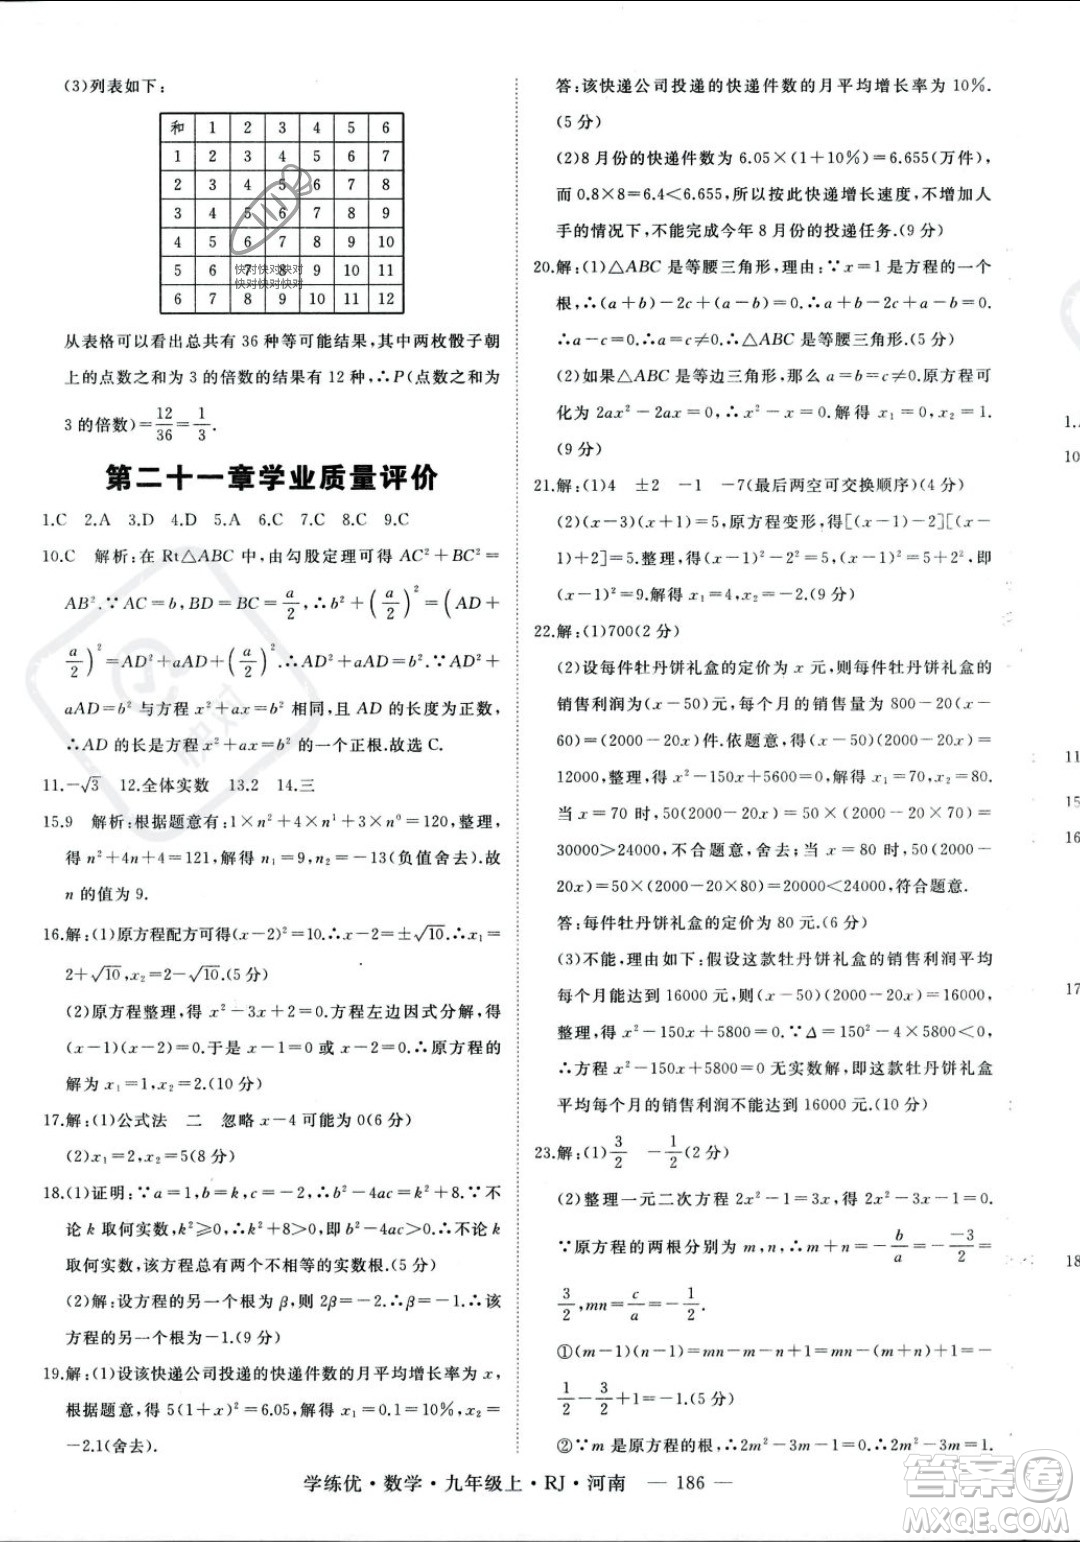 (3)列表如下:
和 1 2 3 4 5 6
1 2 3 4 5 6 7
2 3 4 5 6 7 8
3 4 5 6 7 8 9
4 5 6 7 8 9 10
5 6 7 8 9 10 11
6 7 8 9 10 11 12
快对快对快对
快对快对快对
从表格可以看出总共有 36 种等可能结果,其中两枚骰子朝
上的点数之和为 3 的倍数的结果有 12 种,∴P(点数之和为
3 的倍数)=12/36=1/3.
第二十一章学业质量评价
1.C 2.A 3.D 4.D 5.A 6.C 7.B 8.C 9.C
10.C 解析:在 Rt△ABC 中,由勾股定理可得 AC²+BC²=
AB².∵AC=b,BD=BC=a/2,∴b²+(a/2)²=(AD+
a/2)²=AD²+aAD+(a/2)².∴AD²+aAD=b².∵AD²+
aAD=b² 与方程 x²+ax=b² 相同,且 AD 的长度为正数,
∴AD 的长是方程 x²+ax=b² 的一个正根.故选 C.
11.-√3 12.全体实数 13.2 14.三
15.9 解析:根据题意有:1×n²+4×n¹+3×n⁰=120,整理,
得 n²+4n+4=121,解得 n₁=9,n₂=-13(负值舍去).故
n 的值为 9.
16.解:(1)原方程配方可得(x-2)²=10.∴x-2=±√10.∴x₁=
2+√10,x₂=2-√10.(5 分)
(2)原方程整理,得 x²-3x+2=0.方程左边因式分解,得
(x-1)(x-2)=0.于是 x-1=0 或 x-2=0.∴原方程的
解为 x₁=1,x₂=2.(10 分)
17.解:(1)公式法 二 忽略 x-4 可能为0(6 分)
(2)x₁=2,x₂=5(8 分)
18.(1)证明:∵a=1,b=k,c=-2,∴b²-4ac=k²+8.∵不
论 k 取何实数,k²≥0,∴k²+8>0,即 b²-4ac>0.∴不论 k
取何实数,该方程总有两个不相等的实数根.(5 分)
(2)解:设方程的另一个根为 β,则 2β=-2.∴β=-1.∴该
方程的另一个根为-1.(9 分)
19.解:(1)设该快递公司投递的快递件数的月平均增长率为 x,
根据题意,得 5(1+x)²=6.05,解得 x₁=0.1=10%,x₂=
-2.1(舍去).
答:该快递公司投递的快递件数的月平均增长率为 10%.
(5 分)
(2)8 月份的快递件数为 6.05×(1+10%)=6.655(万件),
而 0.8×8=6.4<6.655,所以按此快递增长速度,不增加人
手的情况下,不能完成今年 8 月份的投递任务.(9 分)
20.解:(1)△ABC 是等腰三角形,理由:∵x=1 是方程的一个
根,∴(a+b)-2c+(a-b)=0.∴a+b-2c+a-b=0.
∴a-c=0.∴a=c.∴△ABC 是等腰三角形.(5 分)
(2)如果△ABC 是等边三角形,那么 a=b=c≠0.原方程可
化为 2ax²-2ax=0,∴x²-x=0.解得 x₁=0,x₂=1.
(9 分)
21.解:(1)4 ±2 -1 -7(最后两空可交换顺序)(4 分)
(2)(x-3)(x+1)=5,原方程变形,得[(x-1)-2][(x-
1)+2]=5.整理,得(x-1)²-2²=5,(x-1)²=5+2²,即
(x-1)²=9.解得 x₁=4,x₂=-2.(9 分)
22.解:(1)700(2 分)
(2)设每件牡丹饼礼盒的定价为 x 元,则每件牡丹饼礼盒的
销售利润为(x-50)元,每个月的销售量为 800-20(x-
60)=(2000-20x)件.依题意,得(x-50)(2000-20x)=
12000,整理,得 x²-150x+5600=0.解得 x₁=70,x₂=80.
当 x=70 时,50(2000-20x)=50×(2000-20×70)=
30000>24000,不合题意,舍去;当 x=80 时,50(2000-
20x)=50×(2000-20×80)=20000<24000,符合题意.
答:每件牡丹饼礼盒的定价为 80 元.(6 分)
(3)不能,理由如下:假设这款牡丹饼礼盒的销售利润平均
每个月能达到 16000 元,则(x-50)(2000-20x)=16000,
整理,得 x²-150x+5800=0.∵Δ=150²-4×5800<0,
∴方程 x²-150x+5800=0 无实数解,即这款牡丹饼礼盒
平均每个月的销售利润不能达到 16000 元.(10 分)
23.解:(1)3/2 -1/2(2 分)
(2)整理一元二次方程 2x²-1=3x,得 2x²-3x-1=0.
∵原方程的两根分别为 m,n,∴m+n=-b/a=-(-3)/2=
3/2,mn=c/a=-1/2.
①(m-1)(n-1)=mn-m-n+1=mn-(m+n)+1=
-1/2-3/2+1=-1.
②∵m 是原方程的根,∴2m²-3m-1=0.∴2m²-3m=1.
学练优·数学·九年级上·RJ·河南 — 186 —
1.
10
11
15
16
17
18
答案卷
MXQE.COM